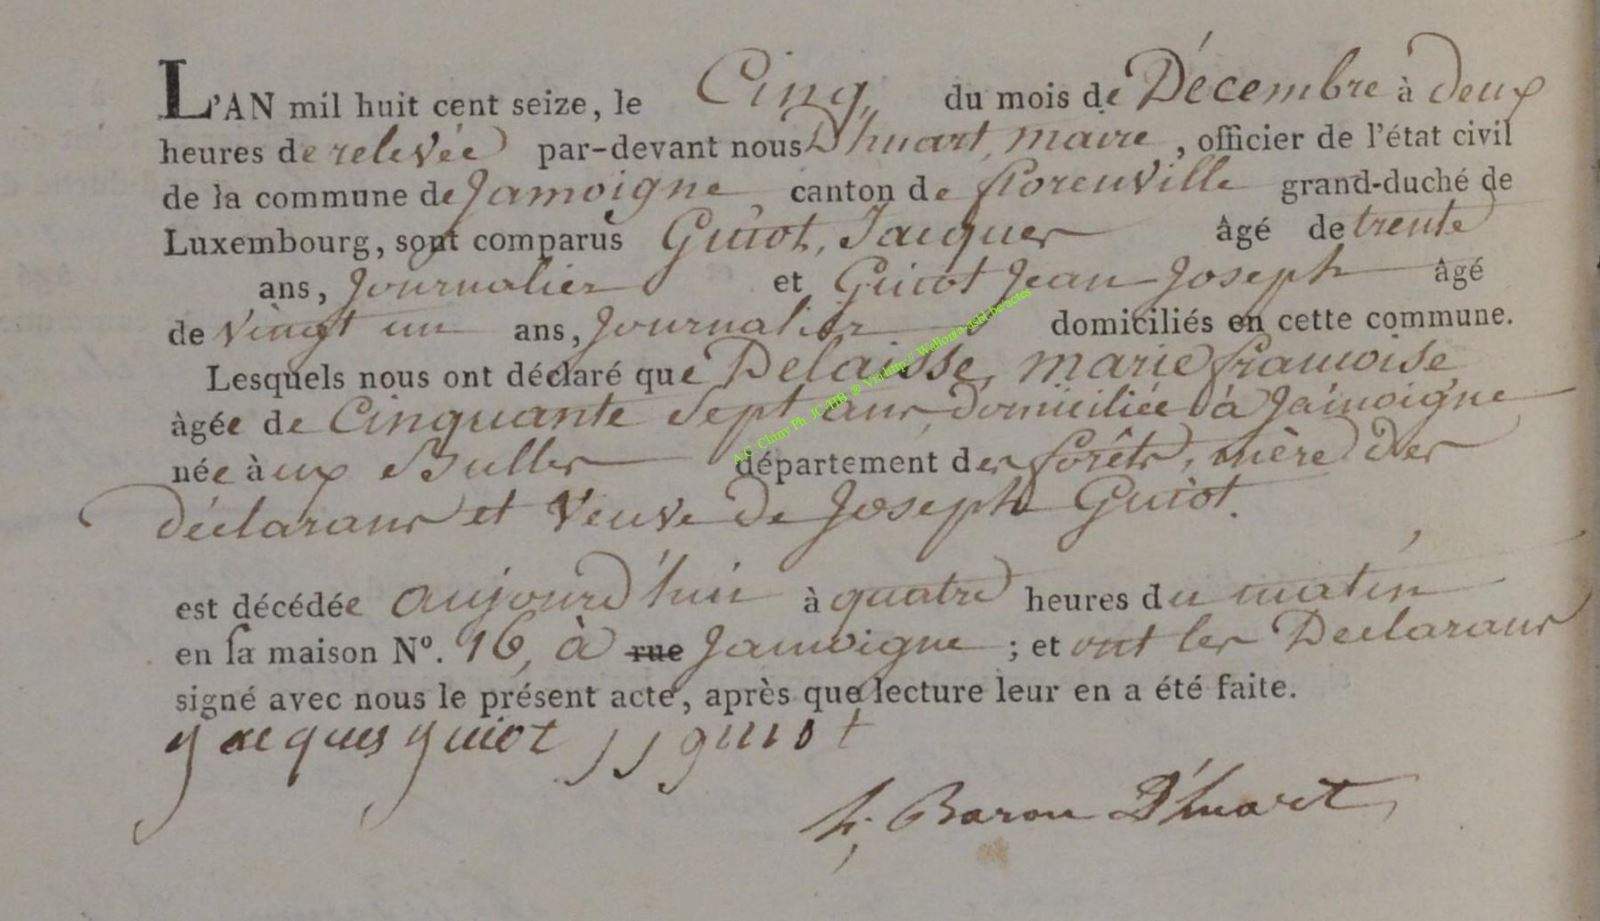 L'AN mil huit cent seize, le Cinq, du mois de Décembre à deux
heures de relevée par-devant nous D'huart, maire, officier de l'état civil
de la commune de Jamoigne, canton de florenville grand-duché de
Luxembourg, sont comparus Guiot, Jacques âgé de trente
ans, Journalier et Guiot Jean Joseph âgé
de vingt un ans, Journalier domiciliés en cette commune.
Lesquels nous ont déclaré que Delaisse, marie francoise
àgée de Cinquante Sept ans, domiciliée à Jamoigne
née àux Bulles département des forêts, mère des
déclarans et Veuve de Joseph Guiot.
est décédée aujourd'hui à quatre heures du matin
en sa maison No. 16, à rue Jamoigne ; et ont les Declarans
signé avec nous le présent acte, après que lecture leur en a été faite.
jacques guiot jj guiot
h. Baron D'huart